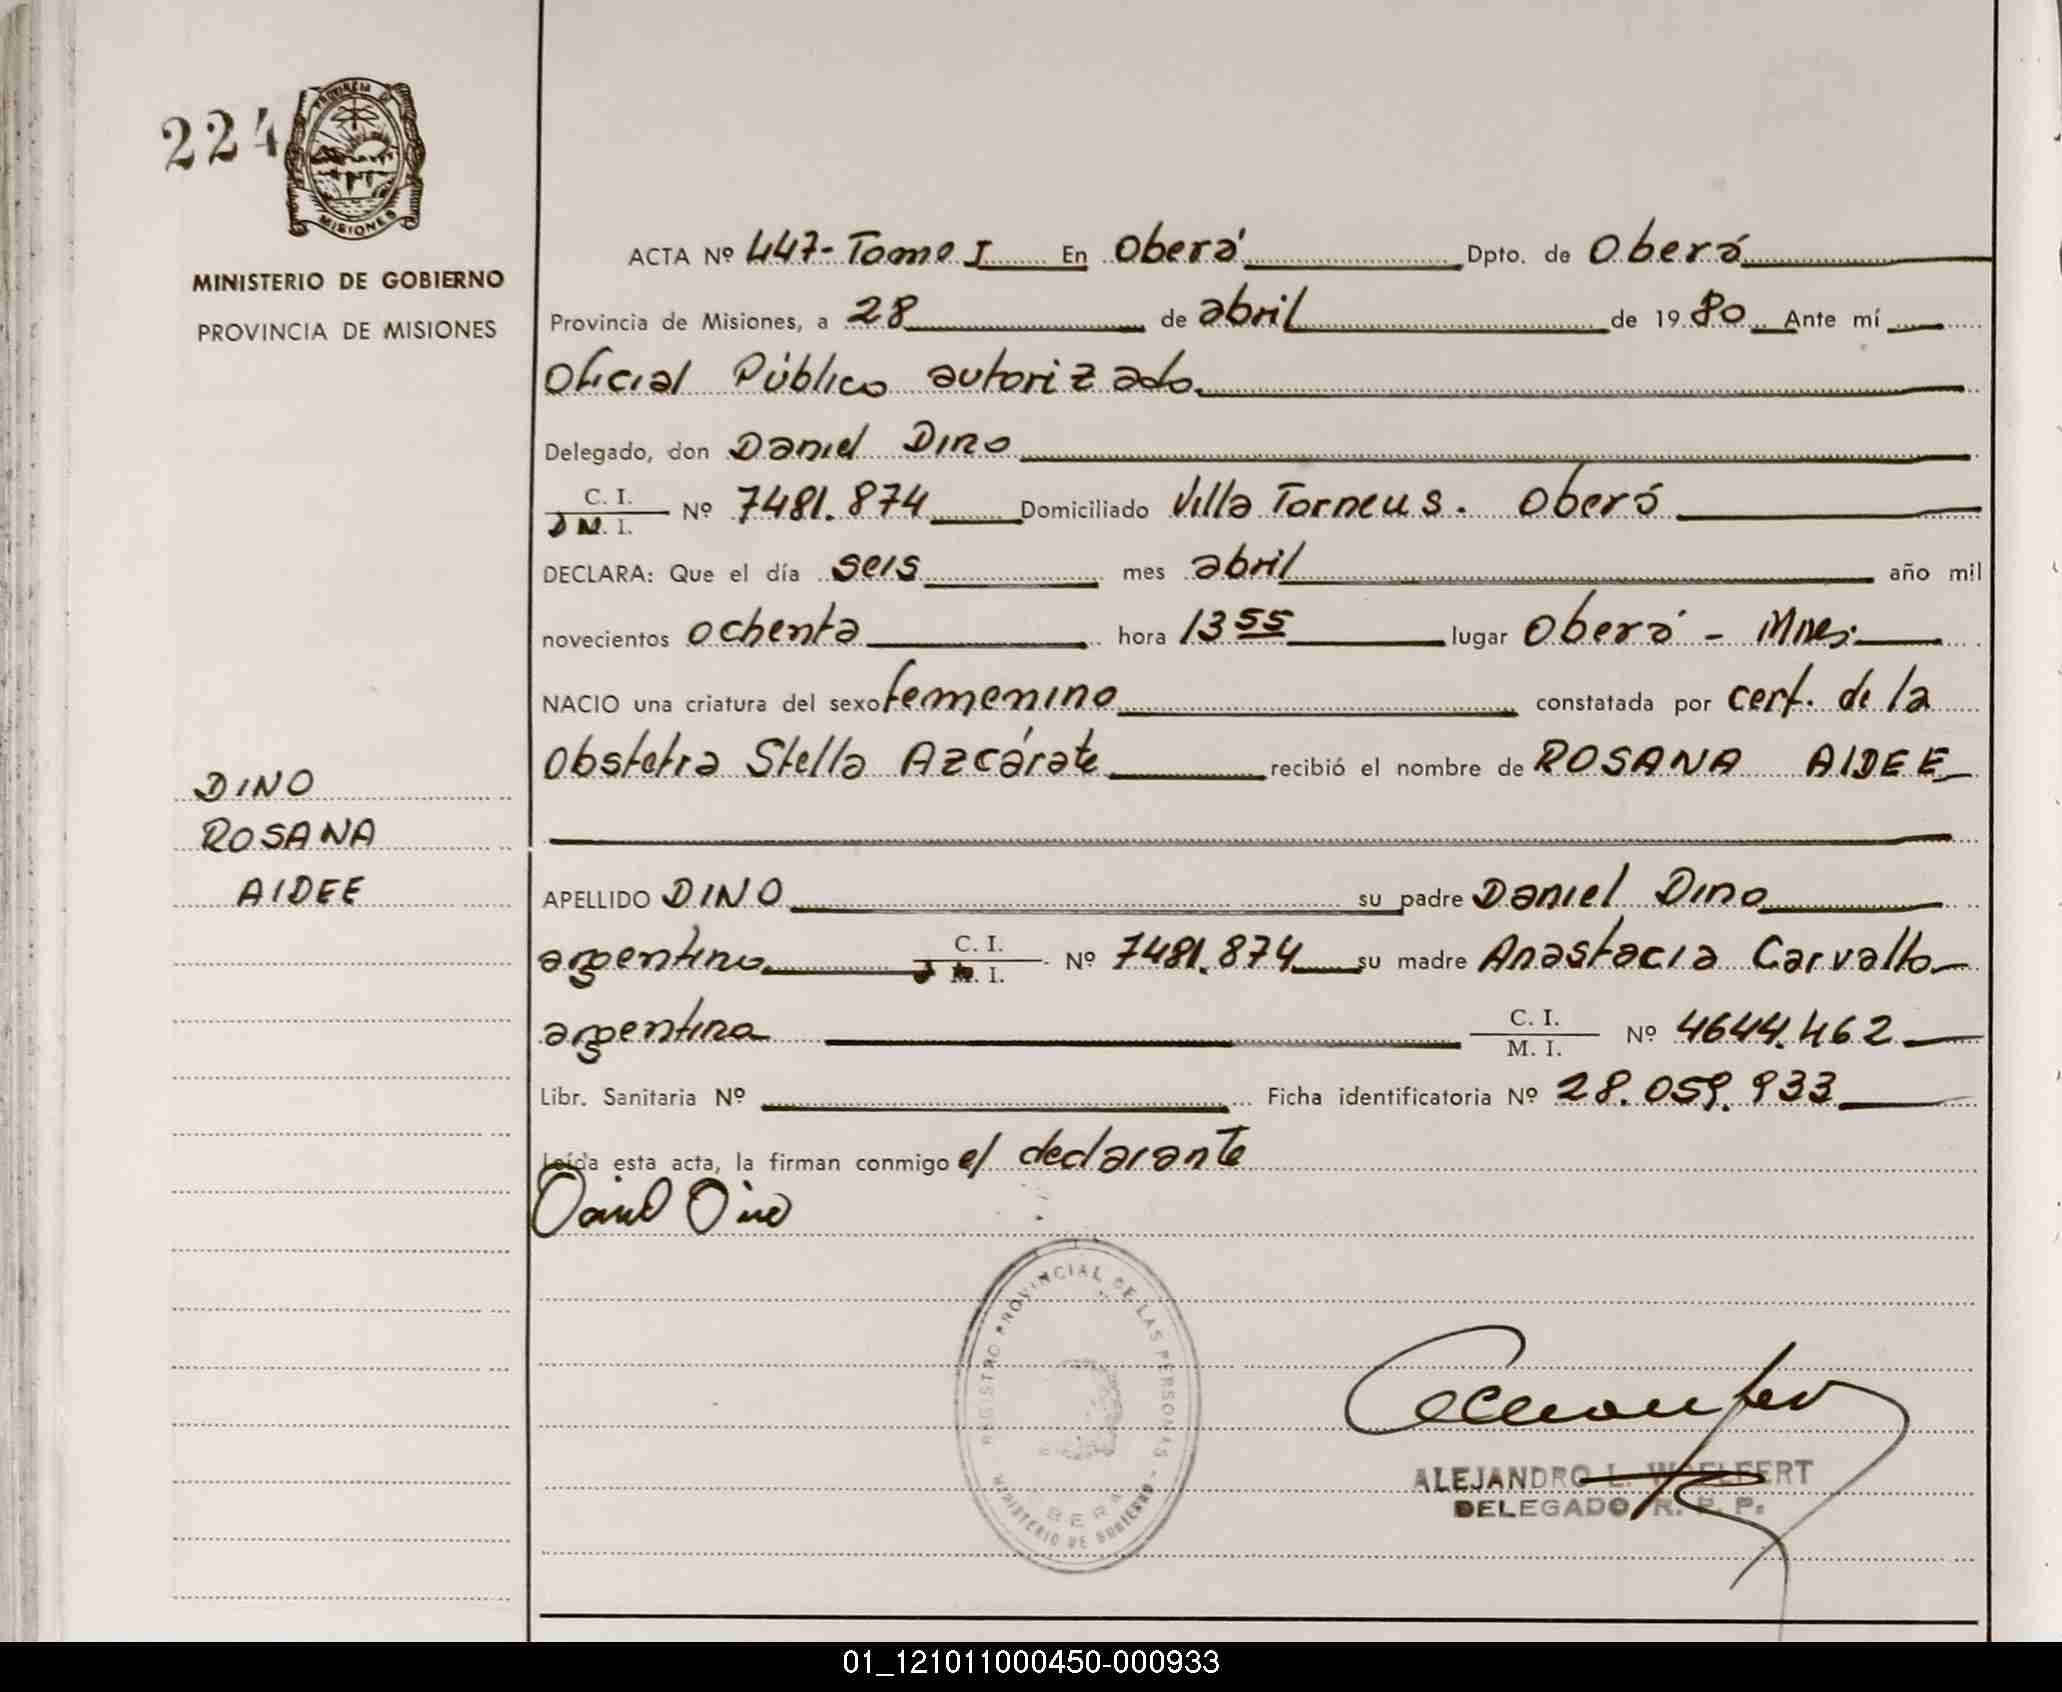 224
PROVINCIA DE
MISIONES
MINISTERIO DE GOBIERNO
PROVINCIA DE MISIONES
ACTA Nº 447-Tomo I En Oberá Dpto. de Oberá
Provincia de Misiones, a 28 de abril de 1980 Ante mí
Oficial Público autorizado
Delegado, don Daniel Dino
C. I.
D M. I. Nº 7481.874 Domiciliado Villa Torneus. Oberá
DECLARA: Que el día seis mes abril año mil
novecientos ochenta hora 13 55 lugar Oberá - Mnes.
NACIO una criatura del sexo femenino constatada por cert. de la
Obstetra Stella Azcárate recibió el nombre de ROSANA AIDEE
DINO
ROSANA
AIDEE
APELLIDO DINO su padre Daniel Dino
argentino C. I. M. I. Nº 7481.874 su madre Anastacia Carvallo
argentina C. I. M. I. Nº 4644.462
Libr. Sanitaria Nº Ficha identificatoria Nº 28.059.933
Leída esta acta, la firman conmigo el declarante
Daniel Dino
REGISTRO PROVINCIAL DE LAS PERSONAS
OBERA
MINISTERIO DE GOBIERNO
ALEJANDRO L. WOELFERT
DELEGADO R. P. P.
01_121011000450-000933